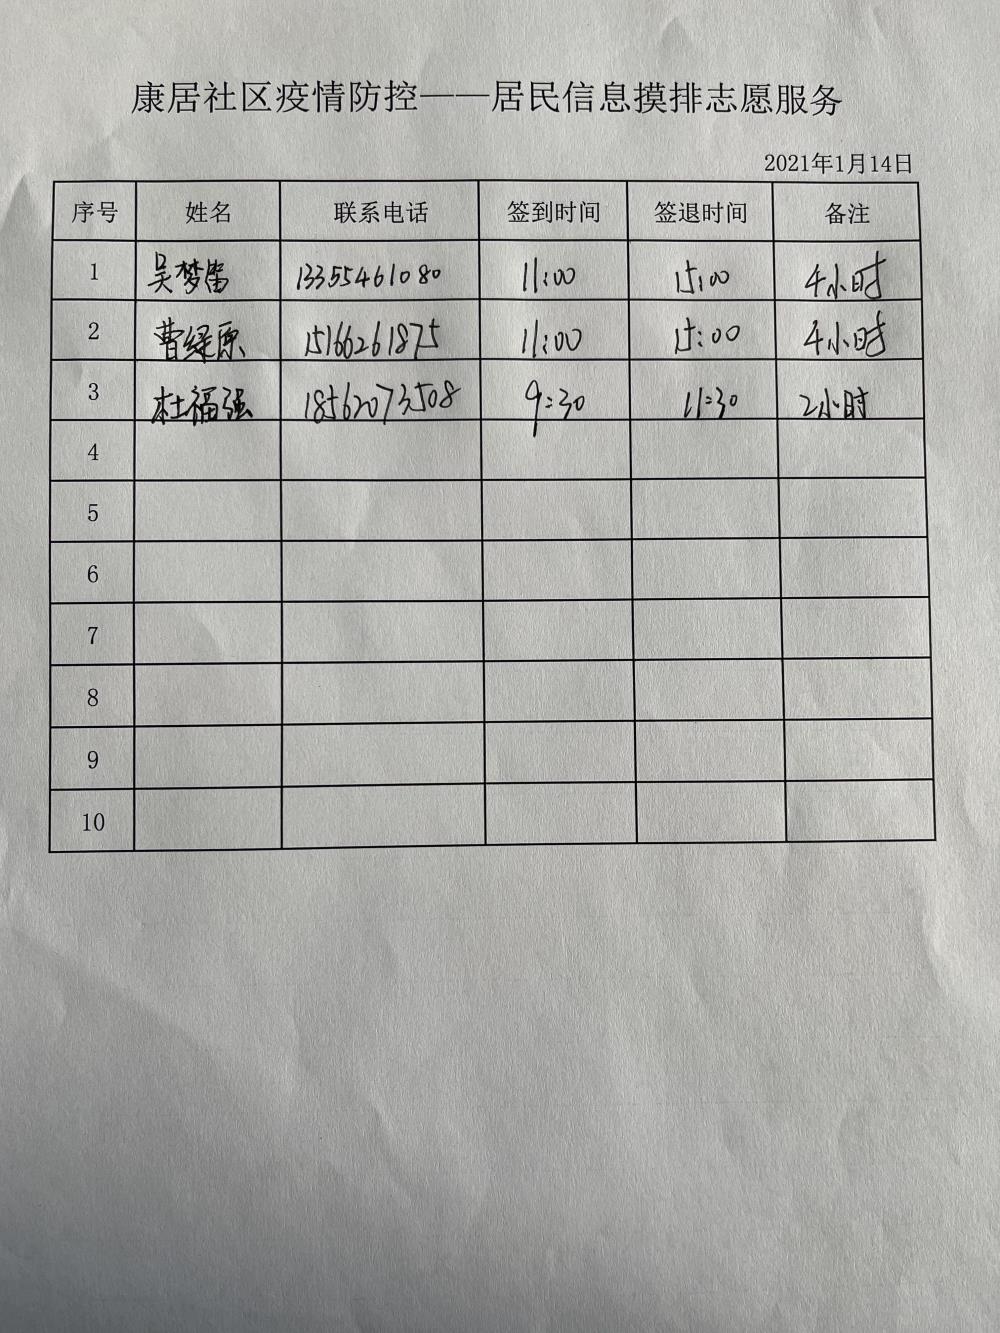 康居社区疫情防控——居民信息摸排志愿服务
2021年1月14日
序号 姓名 联系电话 签到时间 签退时间 备注
1 吴梦雷 13355461080 11:00 15:00 4小时
2 曹绿原 15166261875 11:00 15:00 4小时
3 杜福强 18562073508 9:30 11:30 2小时
4
5
6
7
8
9
10